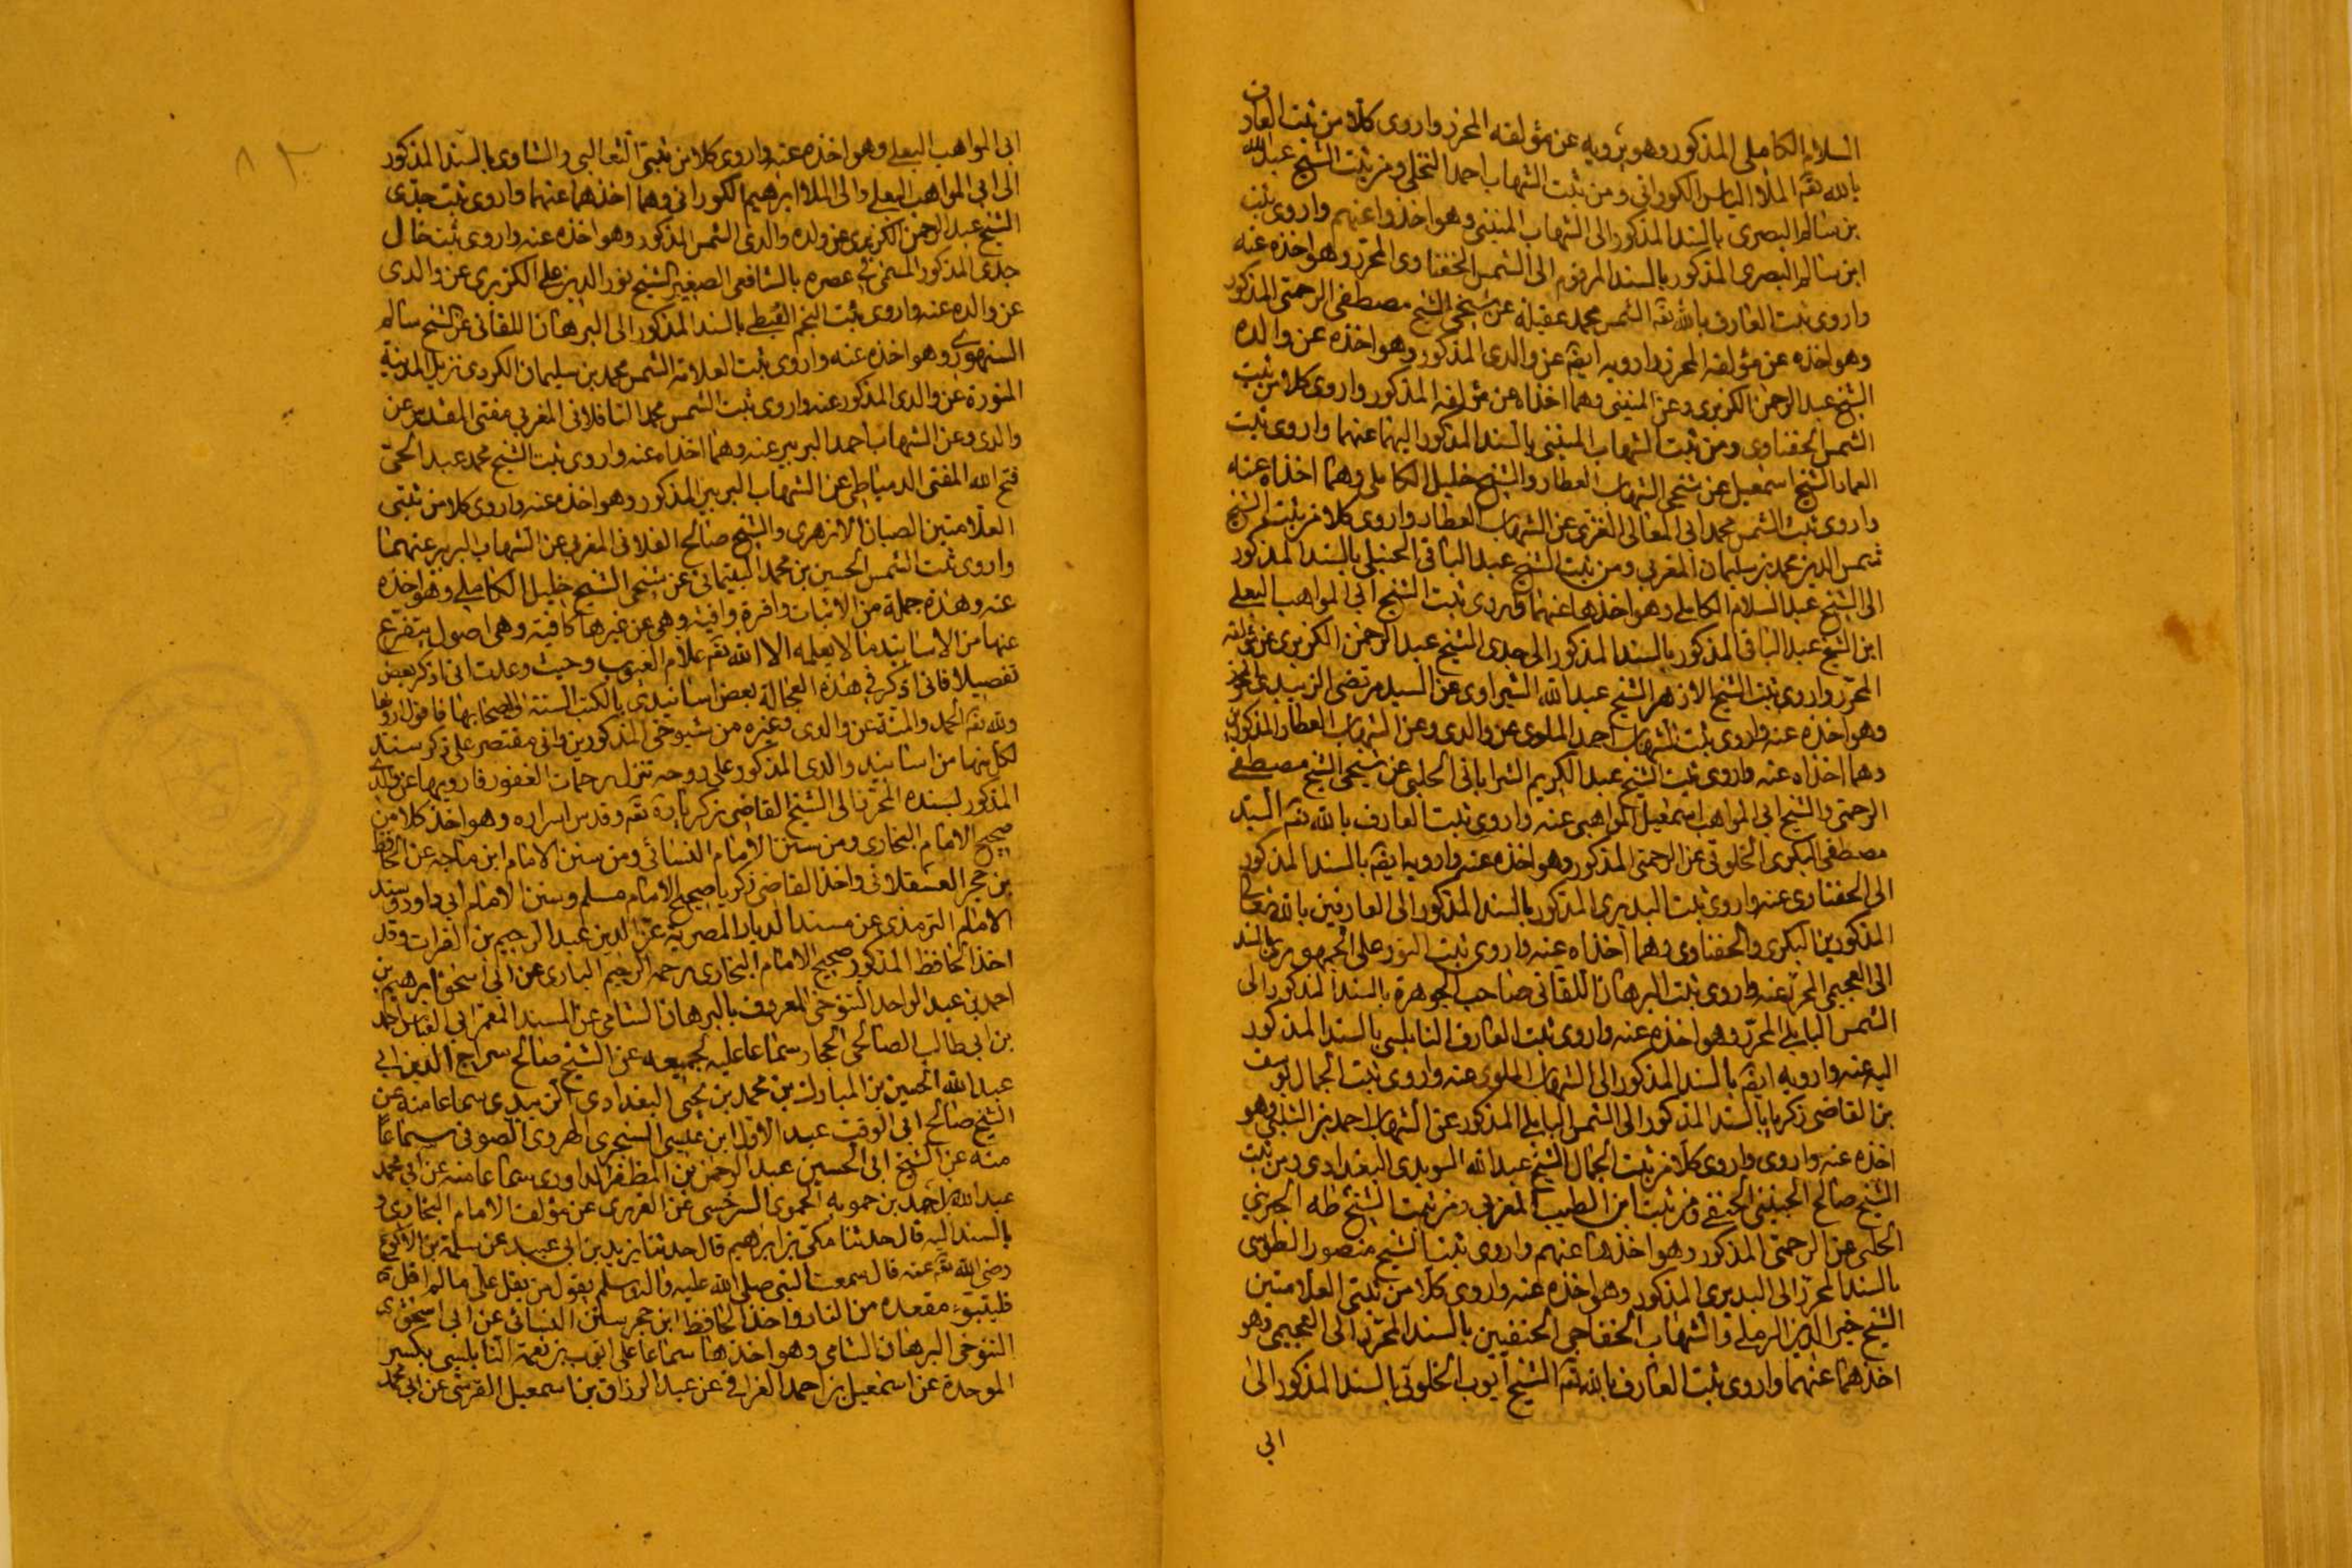 السلام الكاملى المذكور وهو يرويه عن مؤلفه المحرر واروى كلا من ثبت العارف
بالله تقـ الملا الياس الكورانى ومن ثبت الشهاب احمد النخلى ومن ثبت الشيخ عبد الله
بن سالم البصرى بالسند المذكور الى الشهاب المنينى وهو اخذوا عنهم واروى ثبت
ابن سالم البصرى المذكور بالسند المرقوم الى الشمس الحفناوى المحرر وهو اخذه عنه
واروى ثبت العارف بالله تقـ الشمس محمد عقيله عن شيخى الشيخ مصطفى الرحمتى المذكور
وهو اخذه عن مؤلفه المحرر وارويه ايضـ عن والدى المذكور وهو اخذه عن والده
الشيخ عبد الرحمن الكزبرى وعن المنينى وهما اخذاه عن مؤلفه المذكور واروى كلا من ثبت
الشمس الحفناوى ومن ثبت الشهاب المنينى بالسند المذكور اليهما عنهما واروى ثبت
العماد الشيخ اسمعيل عن شيخى الشهاب العطار والشيخ خليل الكاملى وهما اخذاه عنه
واروى ثبت الشمس محمد ابى المعالى الغزى عن الشهاب العطار واروى كلا من ثبت الشيخ
شمس الدين محمد بن سليمان المغربى ومن ثبت الشيخ عبد الباقى الحنبلى بالسند المذكور
الى الشيخ عبد السلام الكاملى وهو اخذهما عنهما واروى ثبت الشيخ ابى المواهب البعلى
ابن الشيخ عبد الباقى المذكور بالسند المذكور الى جدى الشيخ عبد الرحمن الكزبرى عن مؤلفه
المحرر واروى ثبت الشيخ الازهر الشيخ عبد الله الشبراوى عن السيد مرتضى الزبيدى المحرر
وهو اخذه عنه واروى ثبت الشهاب احمد الملوى عن والدى وعن الشهاب العطار المذكورين
وهما اخذاه عنه واروى ثبت الشيخ عبد الكريم الشراباتى الحلبى عن شيخى الشيخ مصطفى
الرحمتى والشيخ ابى المواهب اسمعيل المواهبى عنه واروى ثبت العارف بالله تقـ السيد
مصطفى البكرى الخلوتى عن الرحمتى المذكور وهو اخذه عنه وارويه ايضـ بالسند المذكور
الى الحفناوى عنه واروى ثبت البديرى المذكور بالسند المذكور الى العارفين بالله تعالى
المذكورين البكرى والحفناوى وهما اخذاه عنه واروى ثبت النور على الاجهورى بالسند
الى العجيمى المحرر عنه واروى ثبت البرهان اللقانى صاحب الجوهرة بالسند المذكور الى
الشمس البابلى المحرر وهو اخذه عنه واروى ثبت العارف النابلسى بالسند المذكور
اليه عنه وارويه ايضـ بالسند المذكور الى الشهاب الملوى عنه واروى ثبت الجمال يوسف
بن القاضى زكريا بالسند المذكور الى الشمس البابلى المذكور عن الشهاب احمد بن الشلبى وهو
اخذه عنه واروى واروى كلا من ثبت الجمال الشيخ عبد الله السويدى البغدادى ومن ثبت
الشيخ صالح الجينينى الحنفى ومن ثبت ابن الطيب المغربى ومن ثبت الشيخ طه الجبرينى
الحلبى عن الرحمتى المذكور وهو اخذها عنهم واروى ثبت الشيخ منصور الطوخى
بالسند المحرر الى البديرى المذكور وهو اخذه عنه واروى كلا من ثبتى العلامتين
الشيخ خير الدين الرملى والشهاب الخفاجى الحنفيين بالسند المحرر الى العجيمى وهو
اخذهما عنهما واروى ثبت العارف بالله تقـ الشيخ ايوب الخلوتى بالسند المذكور الى
ابى
٨٢
ابى المواهب البعلى وهو اخذه عنه واروى كلا من ثبتى الثعالبى والشاوى بالسند المذكور
الى ابى المواهب البعلى والى الملا ابراهيم الكورانى وهما اخذهما عنهما واروى ثبت جدى
الشيخ عبد الرحمن الكزبرى عن ولده والدى الشمس المذكور وهو اخذه عنه واروى ثبت خال
جدى المذكور المسمى فى عصره بالشافعى الصغير الشيخ نور الدين على الكزبرى عن والدى
عن والده عنه واروى ثبت النجم الغيطى بالسند المذكور الى البرهان اللقانى عن الشيخ سالم
السنهورى وهو اخذه عنه واروى ثبت العلامة الشمس محمد بن سليمان الكردى نزيل المدينة
المنورة عن والدى المذكور عنه واروى ثبت الشمس محمد التافلاتى المغربى مفتى القدس عن
والدى وعن الشهاب احمد البربير عنه وهما اخذاه عنه واروى ثبت الشيخ محمد عبد الحى
فتح الله المفتى الدمياطى عن الشهاب البربير المذكور وهو اخذه عنه واروى كلا من ثبتى
العلامتين الصبان الازهرى والشيخ صالح الفلانى المغربى عن الشهاب البربير عنهما
واروى ثبت الشمس الحسين بن محمد البيتمانى عن شيخى الشيخ خليل الكاملى وهو اخذه
عنه وهذه جملة من الاثبات وافرة وافية وهى عن غيرها كافية وهى اصول يتفرع
عنها من الاسانيد ما لا يعلمه الا الله تقـ علام الغيوب وحيث وعدت انى اذكر بعض
تفصيلا فانى اذكر فى هذه العجالة بعض اسانيدى بالكتب الستة الى اصحابها فاقول اروها
ولله تقـ الحمد والمنة عن والدى وغيره من شيوخى المذكورين وانى مقتصر على ذكر سند
لكل منها من اسانيد والدى المذكور على روحه تنزل رحمات الغفور فارويها عن والدى
المذكور بسنده المحرر الى الشيخ القاضى زكريا رح تقـ وقدس اسراره وهو اخذ كلا من
صحيح الامام البخارى ومن سنن الامام النسائى ومن سنن الامام ابن ماجه عن الحافظ
بن حجر العسقلانى واخذ القاضى زكريا صحيح الامام مسلم وسنن الامام ابى داود وسنن
الامام الترمذى عن مسند الديار المصرية عز الدين عبد الرحيم بن الفرات وقد
اخذ الحافظ المذكور صحيح الامام البخارى رحمه الرحيم البارى عن ابى اسحق ابرهيم بن
احمد بن عبد الواحد التنوخى المعروف بالبرهان الشامى عن المسند المعمر ابى العباس احمد
بن ابى طالب الصالحى الحجار سماعا عليه لجميعه عن الشيخ صالح سراج الدين ابى
عبد الله الحسين بن المبارك بن محمد بن يحيى البغدادى الزبيدى سماعا منه عن
الشيخ صالح ابى الوقت عبد الاول ابن عيسى السجزى الهروى الصوفى سماعا
منه عن الشيخ ابى الحسين عبد الرحمن بن المظفر الداودى سماعا منه عن ابى محمد
عبد الله بن احمد بن حمويه الحموى السرخسى عن الفربرى عن مؤلفه الامام البخارى و
بالسند اليه قال حدثنا مكى بن ابراهيم قال حدثنا يزيد بن ابى عبيد عن سلمة بن الاكوع
رضى الله تقـ عنه قال سمعت النبى صلى الله عليه واله وسلم يقول من يقل على ما لم اقل
فليتبوء مقعده من النار واخذ الحافظ ابن حجر سنن النسائى عن ابى اسحق
التنوخى البرهان الشامى وهو اخذها سماعا على ايوب بن نعمة النابلسى بكسر
الموحدة عن اسمعيل بن احمد العراقى عن عبد الرزاق بن اسمعيل القرشى عن ابى محمد